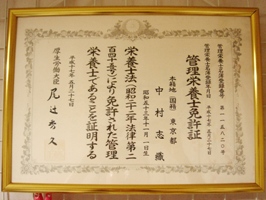 管理栄養士免許証
本籍地（国籍） 東京都
中村志織
昭和五十三年十一月一日生
栄養士法（昭和二十二年法律第二
百四十五号）により免許された管理
栄養士であることを証明する
平成十七年五月二十七日
厚生労働大臣 尾辻秀久